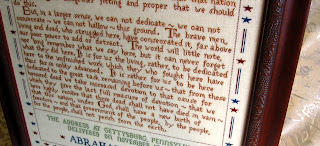 that nation
fitting and proper that we should
this.
But, in a larger sense, we can not dedicate — we can not
consecrate — we can not hallow — this ground. The brave men,
living and dead, who struggled here, have consecrated it, far above
our poor power to add or detract. The world will little note,
nor long remember what we say here, but it can never forget
what they did here. It is for us the living, rather, to be dedicated
here to the unfinished work which they who fought here have
thus far so nobly advanced. It is rather for us to be here
dedicated to the great task remaining before us — that from these
honored dead we take increased devotion to that cause for
which they gave the last full measure of devotion — that we
here highly resolve that these dead shall not have died in vain
that this nation, under God, shall have a new birth of
freedom — and that government of the people, by the people,
for the people, shall not perish from the earth.
THE ADDRESS AT GETTYSBURG, PENNSYL
DELIVERED ON NOVEMBER
ABRAHA